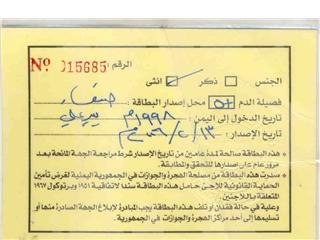 الرقم Nº 015685
الجنس ☐ ذكر ☑ انثى
فصيلة الدم O+ محل إصدار البطاقة: صنعاء
تاريخ الدخول إلى اليمن: ١٩٩٨م
تاريخ الإصدار:
* هذه البطاقة صالحة لمدة عامين من تاريخ الإصدار شرط مراجعة الجهة المانحة بعد
مرور عام على اصدارها للتحقق والمطابقة.
* صدرت هذه البطاقة من مصلحة الهجرة والجوازات في الجمهورية اليمنية لغرض تأمين
الحماية القانونية للاجئ حامل هذه البطاقة سندا لاتفاقية ١٩٥١ وبروتوكول ١٩٦٧
وعلية في حالة فقدان أو تلف هذه البطاقة يجب المبادرة لابلاغ الجهة الصادرة منها أو
تسليمها إلى أحد مراكز الهجرة والجوازات في الجمهورية.